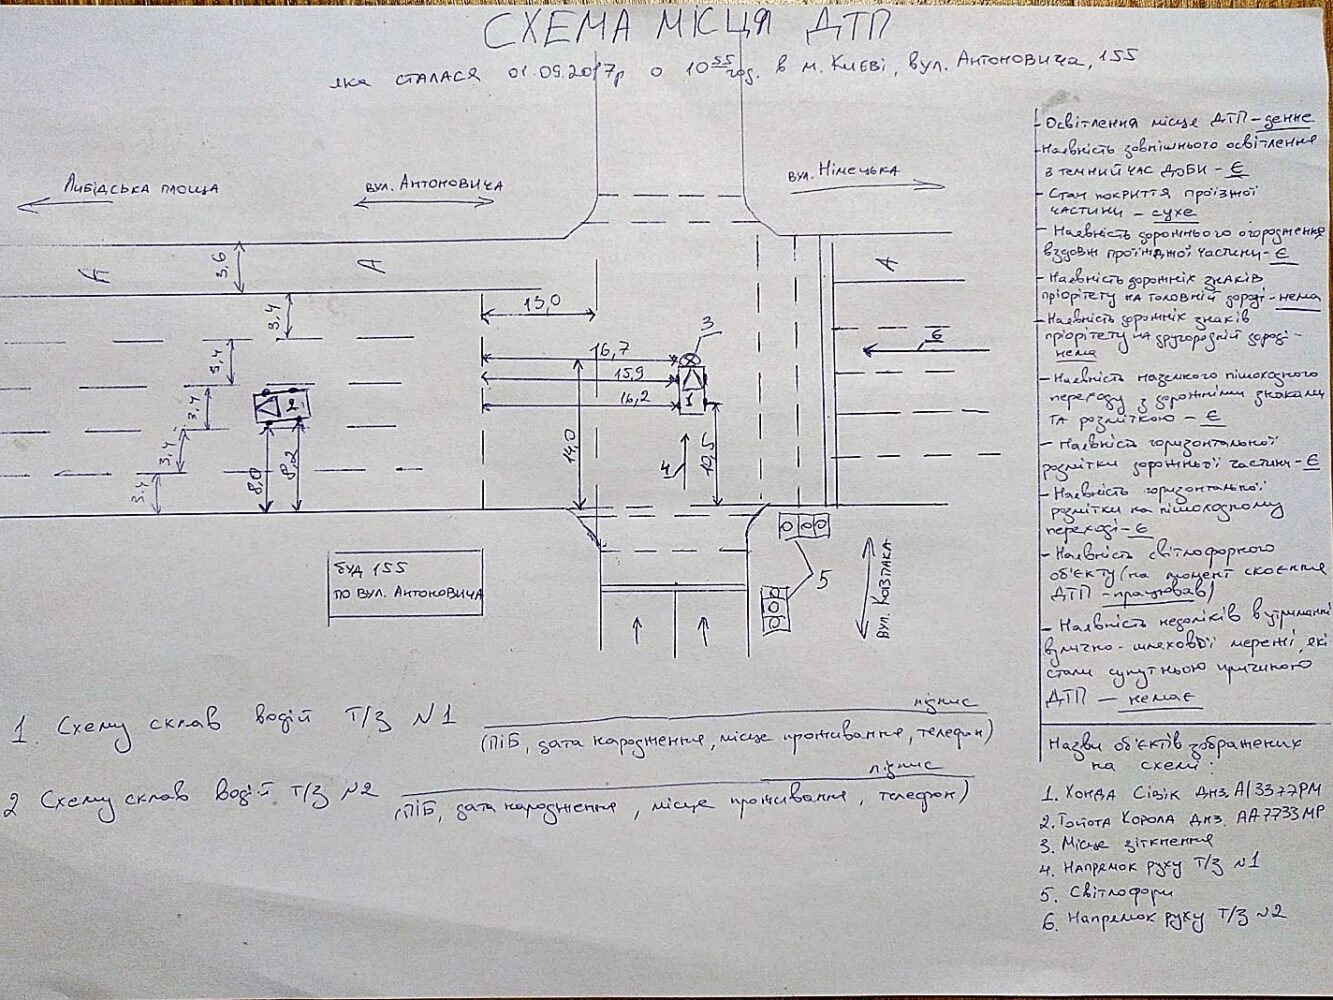 СХЕМА МІСЦЯ ДТП
яка сталася 01.09.2017р о 10⁵⁵ год. в м. Києві, вул. Антоновича, 155
Либідська площа
вул. Антоновича
вул. Німецька
А
А
А
3,6
3,4
3,4
3,4
3,4
3,4
13,0
16,7
15,9
16,2
14,0
10,5
8,0
8,2
1
2
3
4
5
6
вул. Козпака
буд 155
по вул. Антоновича
1. Схему склав водій Т/З №1
підпис
(ПІБ, дата народження, місце проживання, телефон)
2 Схему склав водій Т/З №2
підпис
(ПІБ, дата народження, місце проживання, телефон)
- Освітлення місце ДТП - денне
- Наявність зовнішнього освітлення
з темний час доби - Є
- Стан покриття проїзної
частини - сухе
- Наявність дорожнього огородження
вздовж проїжджої частини - Є
- Наявність дорожніх знаків
пріорітету на головній дорозі - нема
- Наявність дорожніх знаків
пріорітету на другорядній дорозі -
нема
- Наявність наземного пішоходного
переходу з дорожніми знаками
та розміткою - Є
- Наявність горизонтальної
розмітки дорожньої частини - Є
- Наявність горизонтальної
розмітки на пішоходному
переході - Є
- Наявність світлофорного
об'єкту (на момент скоєння
ДТП - працював)
- Наявність недоліків в утриманні
вулично-шляхової мережі, які
стали супутньою причиною
ДТП - немає
Назви об'єктів зображених
на схемі:
1. Хонда Сівік днз. АІ3377РМ
2. Тойота Корола днз. АА7733МР
3. Місце зіткнення
4. Напрямок руху Т/З №1
5. Світлофори
6. Напрямок руху Т/З №2